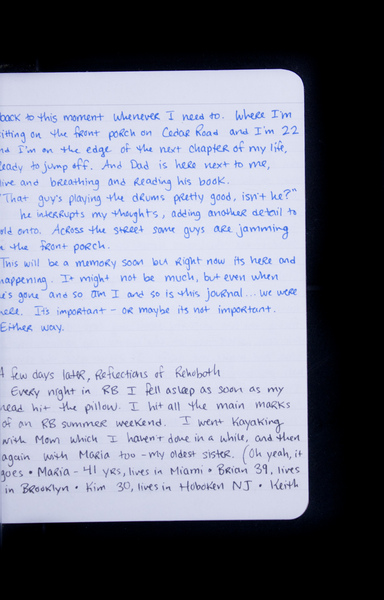 back to this moment whenever I need to. Where I'm
sitting on the front porch on Cedar Road and I'm 22
and I'm on the edge of the next chapter of my life,
ready to jump off. And Dad is here next to me,
live and breathing and reading his book.
"That guy's playing the drums pretty good, isn't he?"
he interrupts my thoughts, adding another detail to
hold onto. Across the street some guys are jamming
n the front porch.
This will be a memory soon but right now its here and
happening. It might not be much, but even when
he's gone and so am I and so is this journal... we were
here. Its important - or maybe its not important.
Either way.
A few days later, Reflections of Rehoboth
Every night in RB I fell asleep as soon as my
head hit the pillow. I hit all the main marks
of an RB summer weekend. I went kayaking
with Mom which I haven't done in a while, and then
again with Maria too - my oldest sister. (Oh yeah, it
goes • Maria - 41 yrs, lives in Miami • Brian 39, lives
in Brooklyn • Kim 30, lives in Hoboken NJ • Keith